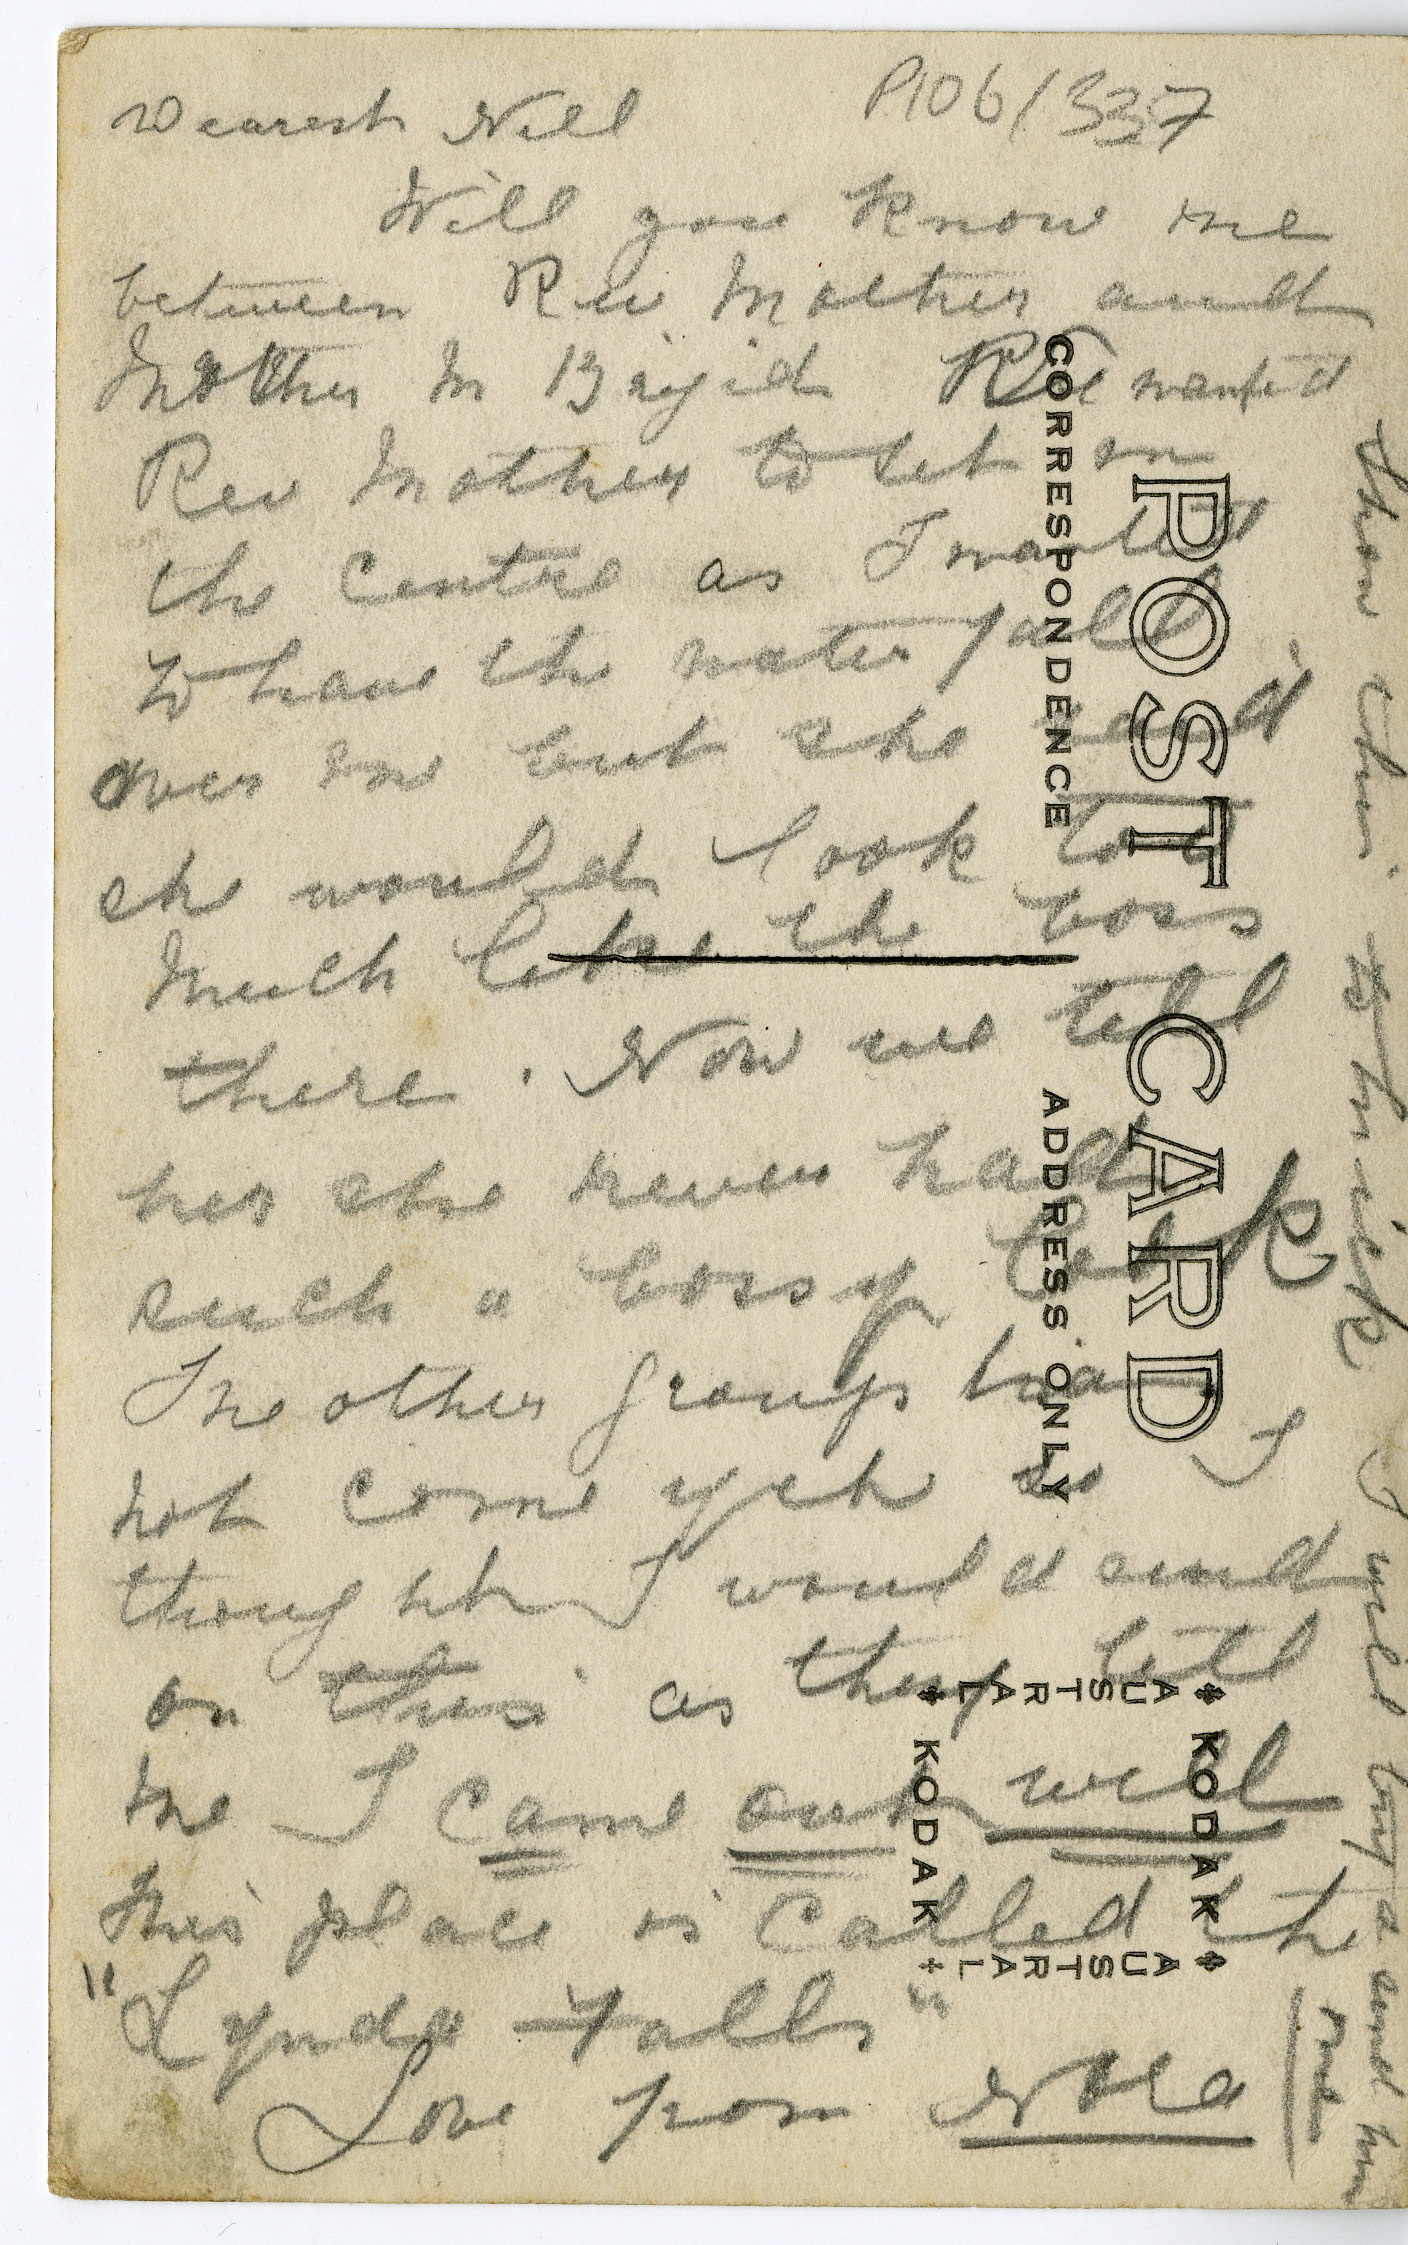 P106/337
Dearest Nell
Will you know me
between Rev Mother and
Mother M Brigid I wanted
Rev Mother to let in
the centre as I wanted
to have the water fall
over me but she said
she would look too
much like the boss
there. Now we tell
her she never had
such a bossy look
The other groups have
not come yet so I
thought I would send
on this as they tell
me I came out well
This place is called the
"Lynda Falls"
Love from Nora
Show this to Mick I will try & send him
one
POST CARD
CORRESPONDENCE
ADDRESS ONLY
AUSTRAL
KODAK
AUSTRAL
KODAK